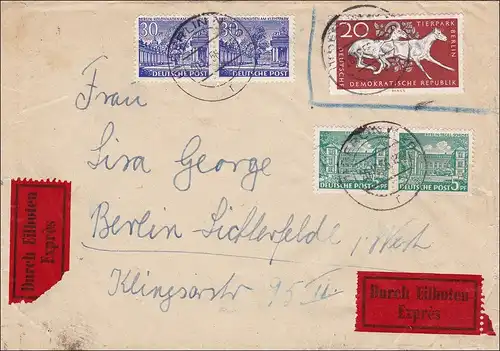 30
30
BERLIN KOLONNADEN AM KLEISTPARK
DEUTSCHE POST
DEUTSCHE POST
20
TIERPARK BERLIN
DEUTSCHE
DEMOKRATISCHE REPUBLIK
BERLIN
Frau
Lisa George
DEUTSCHE POST
DEUTSCHE POST
5 PF
Berlin Lichterfelde West
Klingsorstr 95 II
Durch Eilboten
Exprès
Durch Eilboten
Exprès